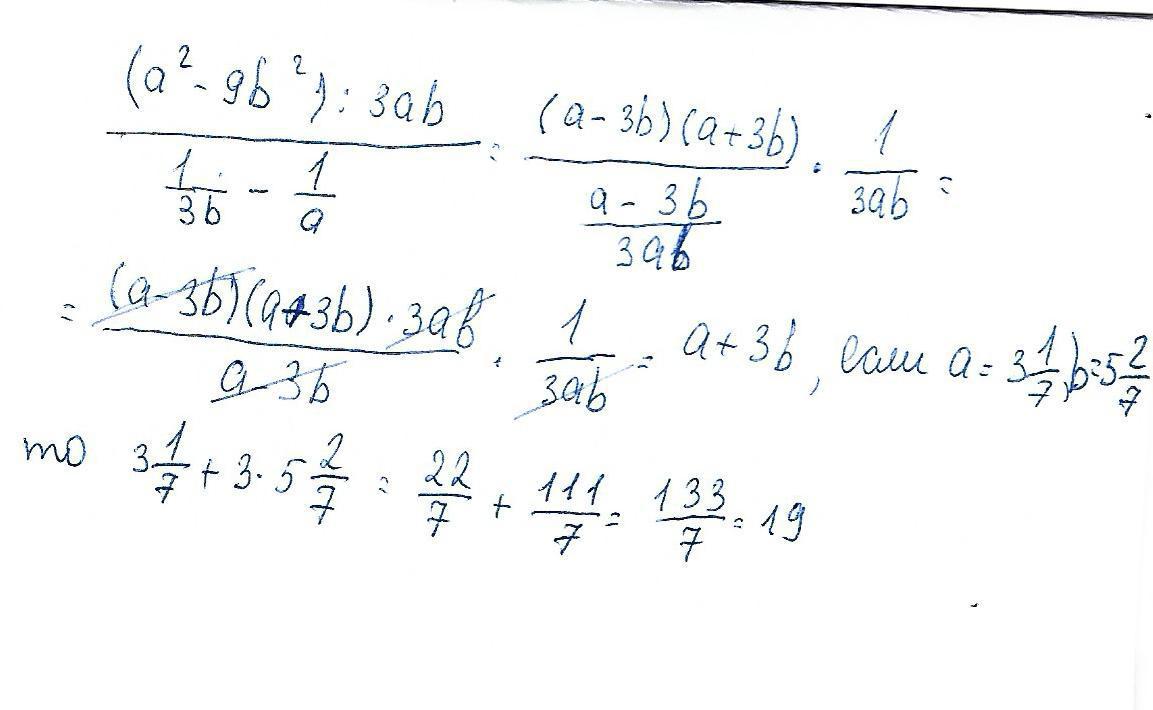 ((a² - 9b²) : 3ab) / (1/3b - 1/a) = ((a - 3b)(a + 3b)) / ((a - 3b)/3ab) · 1/3ab =
= ((a - 3b)(a + 3b) · 3ab) / (a - 3b) · 1/3ab = a + 3b, если a = 3 1/7, b = 5 2/7
то 3 1/7 + 3 · 5 2/7 = 22/7 + 111/7 = 133/7 = 19